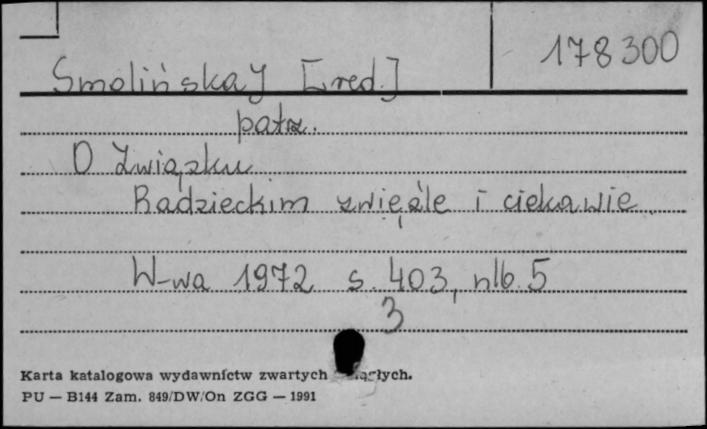 178300
Smolińska J [red.]
patrz.
O Związku
Radzieckim zwięźle i ciekawie
W-wa 1972 s. 403, nlb. 5
3
Karta katalogowa wydawnictw zwartych
PU — B144 Zam. 849/DW/On ZGG — 1991